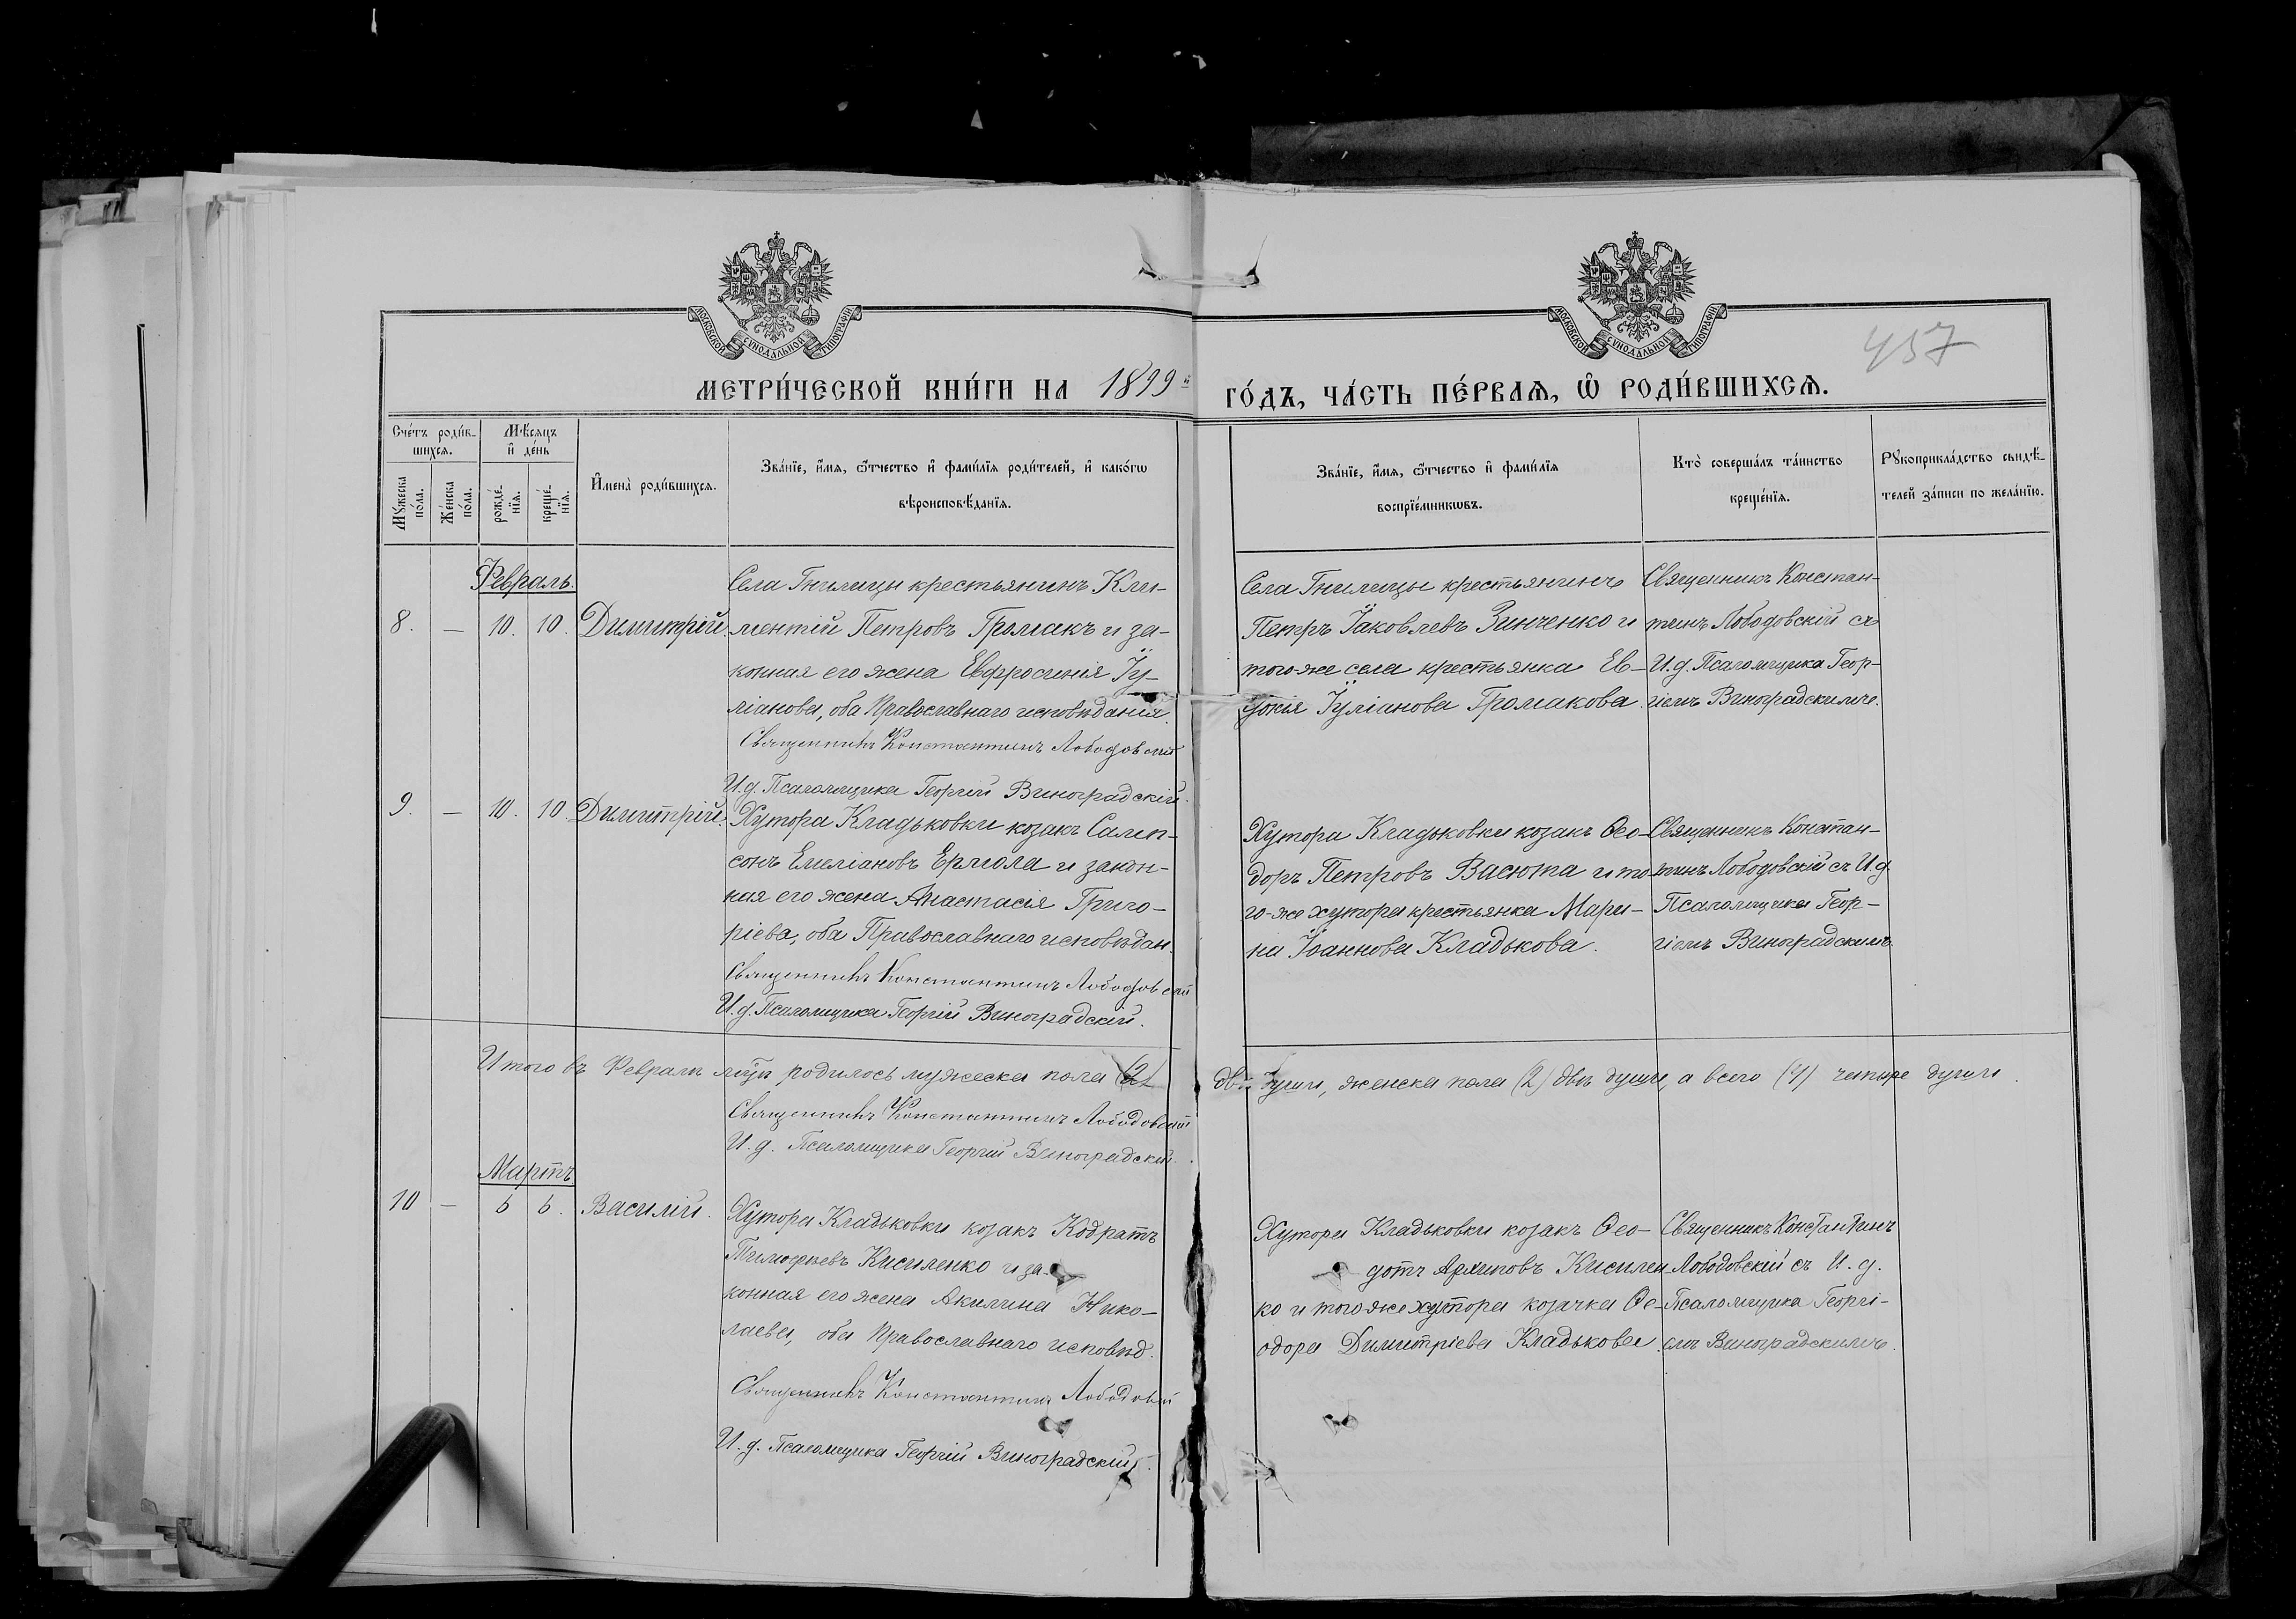 МОСКОВСКОЙ СѴНОДАЛЬНОЙ ТИПОГРАФІИ
МОСКОВСКОЙ СѴНОДАЛЬНОЙ ТИПОГРАФІИ
457
МЕТРИ́ЧЕСКОЙ КНИ́ГИ НА 1899й ГО́ДЪ, ЧА́СТЬ ПЕ́РВАѦ, Ѡ҆ РОДИ́ВШИХСѦ.
Сче́тъ роди́в-
шихсѧ.
Мꙋ́жеска
по́ла.
Же́нска
по́ла.
Мѣ́сѧцъ
и҆ де́нь
рожде́-
нїѧ.
креще́-
нїѧ.
И҆мена̀ роди́вшихсѧ.
Зва́нїе, и҆́мѧ, ѻ҆́тчество и҆ фами́лїѧ роди́телей, и҆ како́гѡ
вѣроисповѣ́данїѧ.
Зва́нїе, и҆́мѧ, ѻ҆́тчество и҆ фами́лїѧ
воспрїе́мникѡвъ.
Кто̀ соверша́лъ та́инство
креще́нїѧ.
Рꙋкоприкла́дство свидѣ́-
телей за́писи по жела́нїю.
Февраль.
8. — 10. 10. Димитрій.
Села Гнилицы крестьянинъ Кли-
ментій Петровъ Громакъ и за-
конная его жена Евфросинія Іу-
ліанова, оба Православнаго исповѣданія.
Священникъ Константинъ Лободовскій
И.д. Псаломщика Георгій Виноградскій.
Села Гнилицы крестьянинъ
Петръ Іаковлевъ Зинченко и
того-же села крестьянка Ев-
докія Іуліанова Громакова.
Священникъ Констан-
тинъ Лободовскій съ
И.д. Псаломщика Геор-
гіемъ Виноградскимъ.
9. — 10. 10. Димитрій.
Хутора Кладьковки козакъ Самп-
сонъ Емеліановъ Ермола и закон-
ная его жена Анастасія Григо-
ріева, оба Православнаго исповѣдан.
Священникъ Константинъ Лободовскій
И.д. Псаломщика Георгій Виноградскій.
Хутора Кладьковки козакъ Ѳео-
доръ Петровъ Васюта и то-
го-же хутора крестьянка Мари-
на Іоаннова Кладькова.
Священникъ Констан-
тинъ Лободовскій съ И.д.
Псаломщика Геор-
гіемъ Виноградскимъ
Итого въ Февралѣ м-цѣ родилось мужеска пола (2) двѣ души, женска пола (2) двѣ души, а всего (4) четыре души.
Священникъ Константинъ Лободовскій
И.д. Псаломщика Георгій Виноградскій.
Мартъ
10 — 6 6. Василій.
Хутора Кладьковки козакъ Кодратъ
Тимофеевъ Кисиленко и за-
конная его жена Акилина Нико-
лаева, оба Православнаго исповѣд.
Священникъ Константинъ Лободовскій
И.д. Псаломщика Георгій Виноградскій.
Хутора Кладьковки козакъ Ѳео-
дотъ Архиповъ Кисилен-
ко и того-же хутора козачка Ѳе-
одора Димитріева Кладькова.
Священникъ Константинъ
Лободовскій съ И.д.
Псаломщика Георгі-
емъ Виноградскимъ.